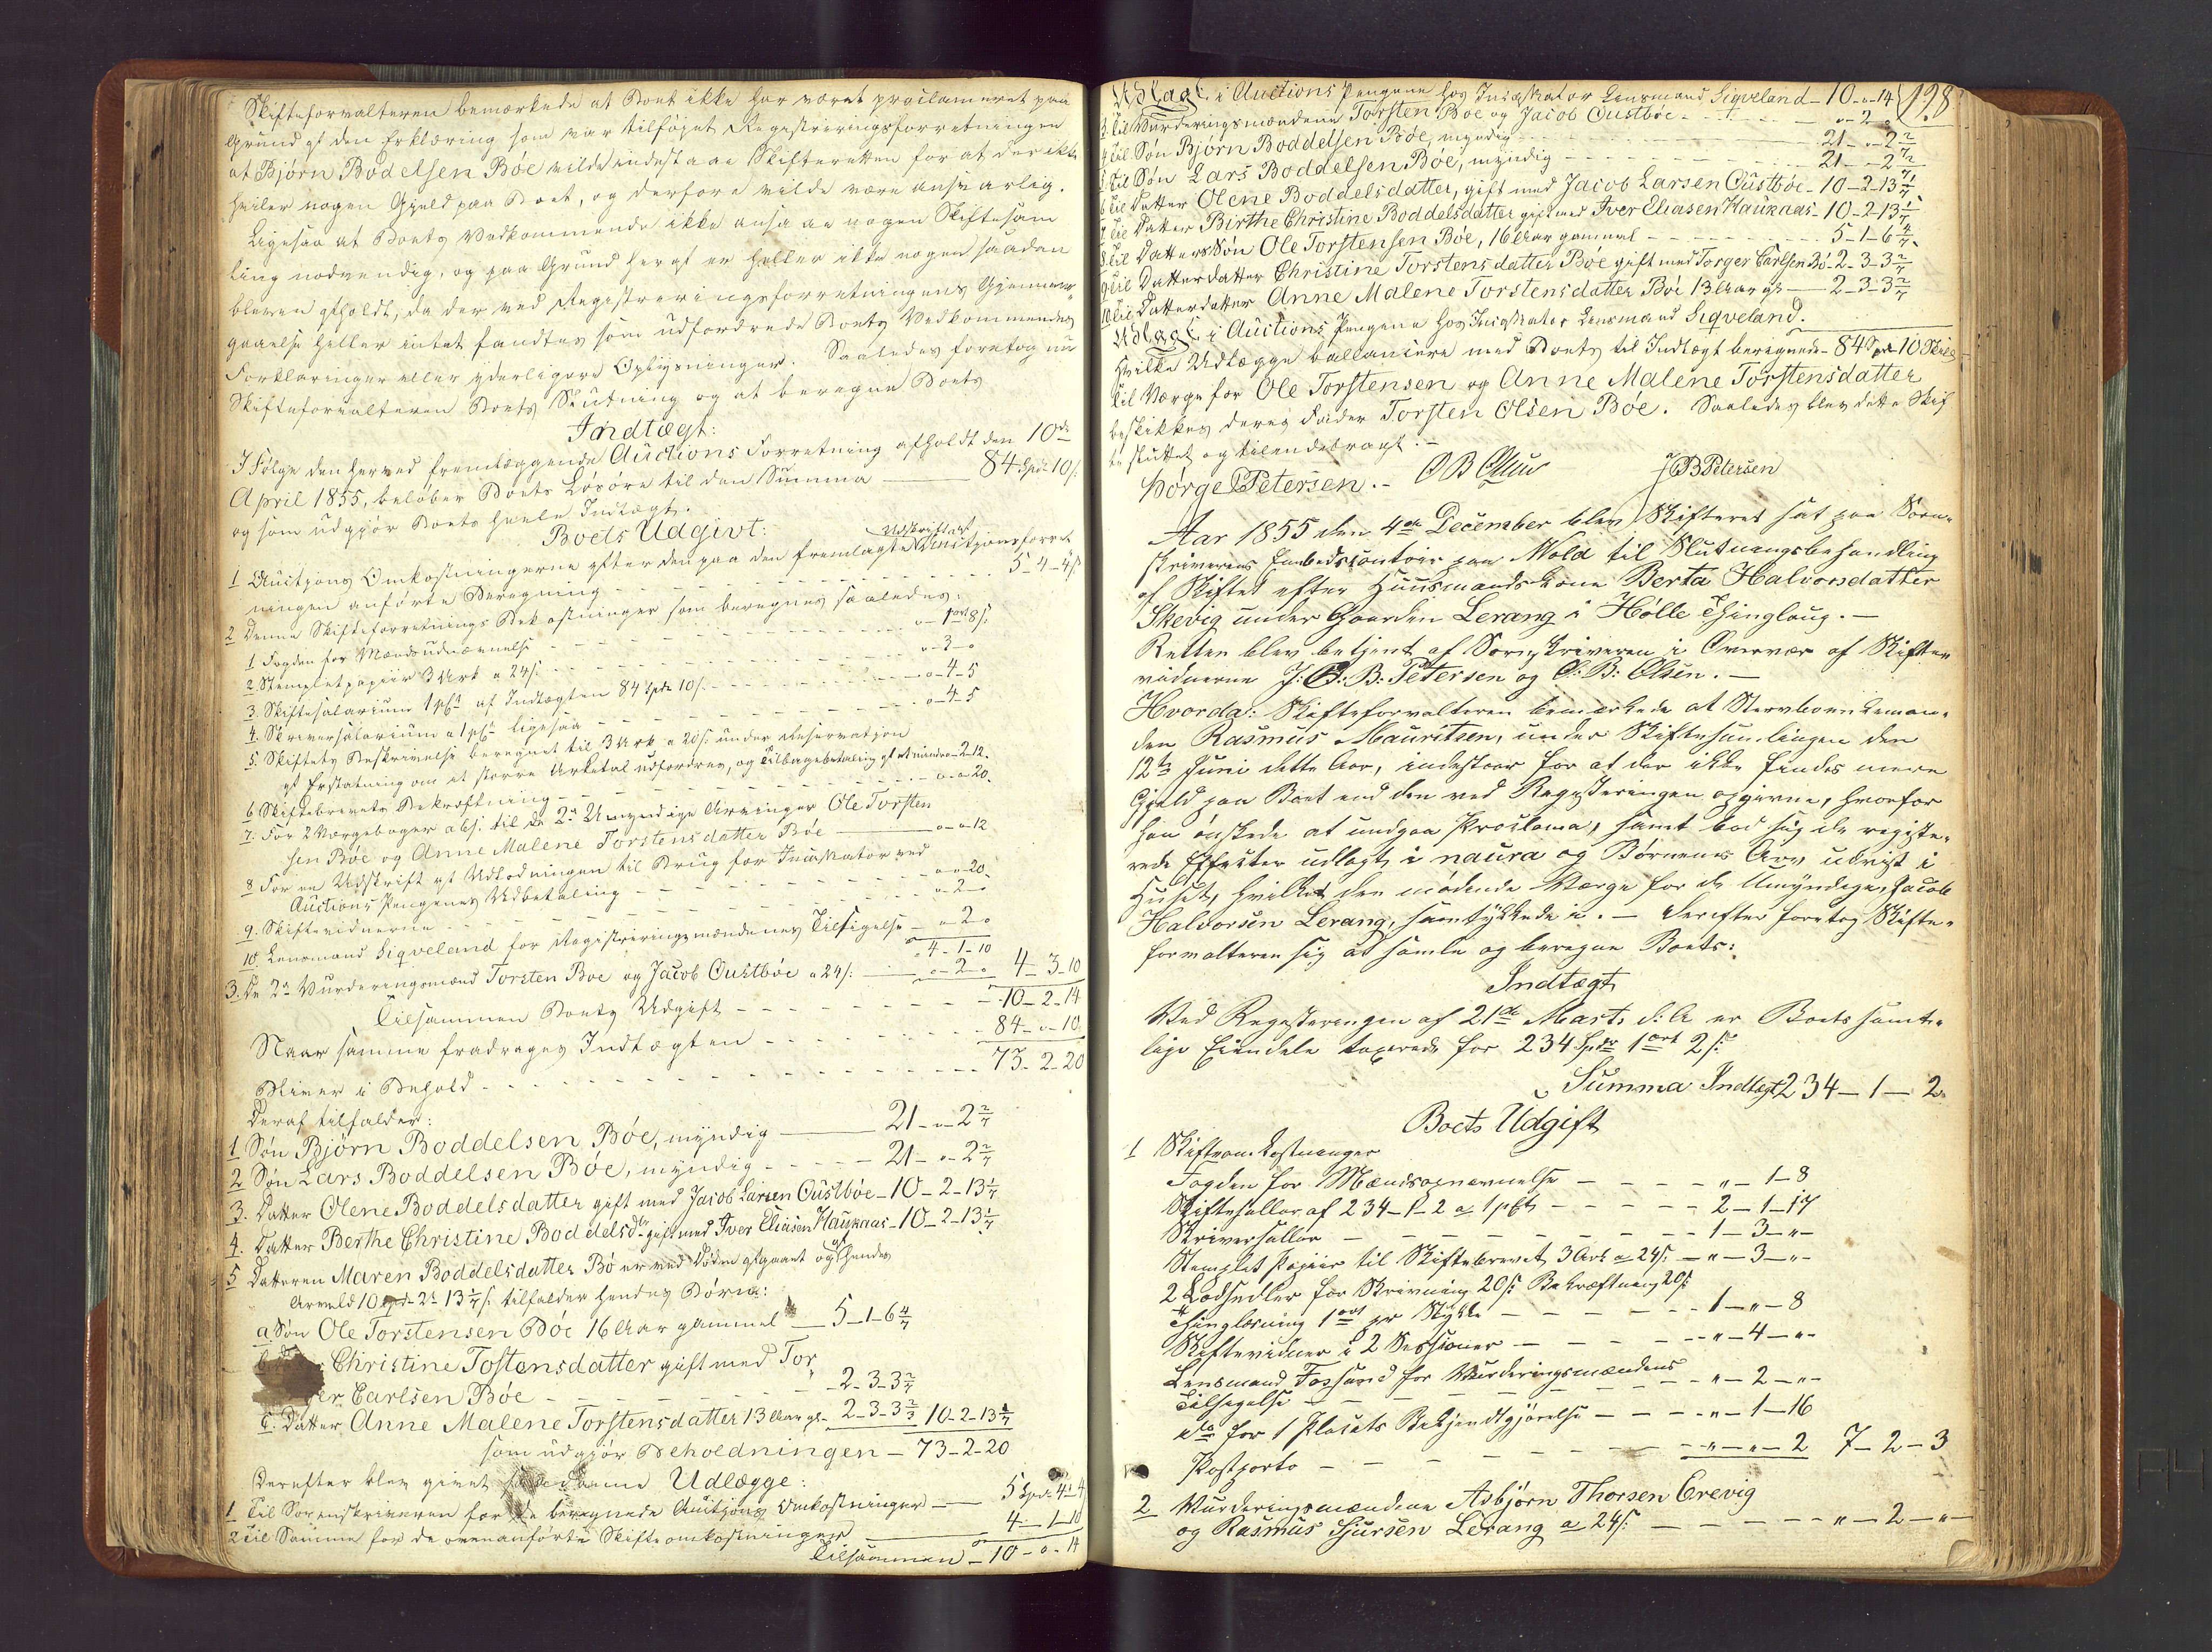 Skifteforvalteren bemærkede at Boet ikke har været proclameret paa
Grund af den Erklæring som var tilføjet Registreringsforretningen
at Bjørn Bodelsen Bøe vilde indestaae Skifteretten for at der ikke
hviler nogen Gjeld paa Boet, og derfore vilde være ansvarlig.
Ligesaa at Boets Vedkommende ikke ansaae nogen Skiftesam
ling nødvendig, og paa Grund heraf er heller ikke nogen saadan
bleven afholdt, da der ved Registreringsforretningens Gjennem-
gaaelse heller intet fandtes som udfordrede Boets Vedkommendes
Forklaringer eller yderligere Oplysninger. Saaledes foretog nu
Skifteforvalteren Boets Slutning og at beregne Boets
Indtægt:
I Følge den herved fremlæggende Auctions Forretning afholdt den 10de
April 1855, beløber Boets Løsøre til den Summa — 84 Spd 10 s.
og som udgjør Boets heele Indtægt.
Boets Udgivt:
Udskrift af
1 Auctions Omkostningerne efter den paa den fremlagte Auctionsforret
ningen anførte Beregning - - - 5-4-4 s
2 Denne Skifteforretnings Bekostninger som beregnes saaledes:
1 Fogden for Mændsudnævnelse - - - „-1 ort 8 s.
2. Stemplet papiir 3 Ark a 24 s. - - - „-3-„
3. Skiftesalarium 1 pCt af Indtægten 84 Spd 10 s. - - - „-4-5
4. Skriversalarium a 1 pCt ligesaa - - - „-4-5
5. Skiftets Beskrivelse beregnet til 3 Ark a 20 s. under Reservation
af Erstatning om et større Arketal udfordres, og Tilbagebetaling af et mindre - 2-12.
6 Skiftebrevets Bekræftning - - - „-„-20.
7. For 2 Værgebøger a 6 s. til de 2de Umyndige Arvinger Ole Torsten
sen Bøe og Anne Malene Torstensdatter Bøe — „-„-12
8 For en Udskrift af Udlodningen til Brug for Incassator ved
Auctions Pengenes Udbetaling - - - „-„-20.
9. Skiftevidnerne - - - „-2-„
10. Lensmand Siqveland for Registreringsmændenes Tilsigelse - „-2-„
4-1-10
3. De 2de Vurderingsmænd Torsten Bøe og Jacob Oustbøe a 24 s. — „-2-„ 4-3-10
Tilsammen Boets Udgift - - - 10-2-14
Naar samme fradrages Indtægten - - - 84-„-10.
Bliver i Behold - - - 73-2-20
Deraf tilfalder:
1 Søn Bjørn Boddelsen Bøe, myndig — 21-„-2 2/7
2 Søn Lars Boddelsen Bøe, myndig - - - 21-„-2 2/7
3. Datter Olene Boddelsdatter gift med Jacob Larsen Oustbøe - 10-2-13 1/7
4. Datter Berthe Christine Boddelsdtr gift med Iver Eliasen Haukaas - 10-2-13 1/7
5 Datteren Maren Boddelsdatter Bø er ved Døden afgaaet og hendes
Arvelod 10 Spd 2 ort 13 1/7 s. tilfalder hendes Børn:
a. Søn Ole Torstensen Bøe 16 Aar gammel — 5-1-6 4/7
Christine Tostensdatter gift med Tor
ger Carlsen Bøe - - - 2-3-3 2/7
c. Datter Anne Malene Torstensdatter 13 Aar gl. - 2-3-3 2/7 10-2-13 1/7
som udgjør Beholdningen - 73-2-20
Derefter blev givet saadanne Udlægge:
1 Til Sorenskriveren for de beregnede Auctions Omkostninger — 5 Spd 4 ort 4
2 Til Samme for de ovenanførte Skifteomkostninger — 4-1-10
Tilsammen - 10-„-14
Udlagt i Auctions Pengene hos Incassator Lensmand Siqveland - 10-„-14 198
3 Til Vurderingsmændene Torsten Bøe og Jacob Oustbøe - - - „-2-„
4 Til Søn Bjørn Boddelsen Bøe, myndig - - - 21-„-2 2/7
5 Til Søn Lars Boddelsen Bøe, myndig - - - 21-„-2 2/7
6 Til Datter Olene Boddelsdatter, gift med Jacob Larsen Oustbøe - 10-2-13 1/7
7 Til Datter Birthe Christine Boddelsdatter gift med Iver Eliasen Haukaas - 10-2-13 1/7
8 Til Datters Søn Ole Torstensen Bøe, 16 Aar gammel - - - 5-1-6 4/7.
9 Til Datterdatter Christine Torstensdatter Bøe gift med Torger Carlsen Bø - 2-3-3 2/7
10 Til Datterdatter Anne Malene Torstensdatter Bøe 13 Aar gl — 2-3-3 2/7
Udlagt i Auctions Pengene hos Incassator Lensmand Siqveland.
Hvilke Udlægge ballancere med Boets til Indtægt beregnede - 84 Spd 10 Skill
Til Værge for Ole Torstensen og Anne Malene Torstensdatter
beskikkes deres Fader Torsten Olsen Bøe. Saaledes blev dette Skif
te sluttet og tilendebragt. -
Børge Petersen. - O B Olsen J B Petersen
Aar 1855 den 4de December blev Skifteret sat paa Soren-
skriverens Embedscontoir paa Wold til Slutningsbehandling
af Skiftet efter Huusmandskone Berta Halvorsdatter
Skevig under Gaarden Lerang i Hølle Thinglaug. —
Retten blev betjent af Sorenskriveren i Overvær af Skifte-
vidnerne J: B: B: Petersen og O: B: Olsen. —
Hvorda: Skifteforvalteren bemærkede at Stervboenkeman-
den Rasmus Mauritsen, under Skiftesamlingen den
12te Juni dette Aar, indestaar for at der ikke findes mere
Gjeld paa Boet end den ved Registreringen opgivne, hvorfor
han ønskede at undgaa Proclama, samt bad sig de registre-
rede Effecter udlagt i naura og Børnenes Arv udvist i
Huset, hvilket den mødende Værge for de Umyndige, Jacob
Halvorsen Lerang, samtykkede i. — Derefter foretog Skifte-
forvalteren sig at samle og beregne Boets:
Indtægt
Ved Registreringen af 21de Marts d: A er Boets samt-
lige Eiendele taxerede for 234 Spdr 1 ort 2 s:
Summa Indtægt 234-1-2.
Boets Udgift
1 Skifteomkostninger
Fogden for Mændsopnævnelse - - - „-1-8
Skiftesallar af 234-1-2 a 1 pCt - - - 2-1-17
Skriversallar - - - 1-3-„-
Stemplet Papiir til Skiftebrevet 3 Ark a 24 s. - „-3-„-
2 Lodsedler for Skrivning 20 s: Bekræftning 20 s:
Thinglæsning 1 ort pr Stykke - - - 1-„-8
Skiftevidner i 2 Sessioner - - - „-4-„-
Lensmand Fossand for Vurderingsmændenes
Tilsigelse - - - „-2-„-
dto for 1 Placats Bekjendtgjørelse - - - „-1-16
Postporto - - - „-„-2 7-2-3
2 Vurderingsmændene Asbjørn Thorsen Erevig
og Rasmus Sjursen Lerang a 24 s: - - - „-2-„-